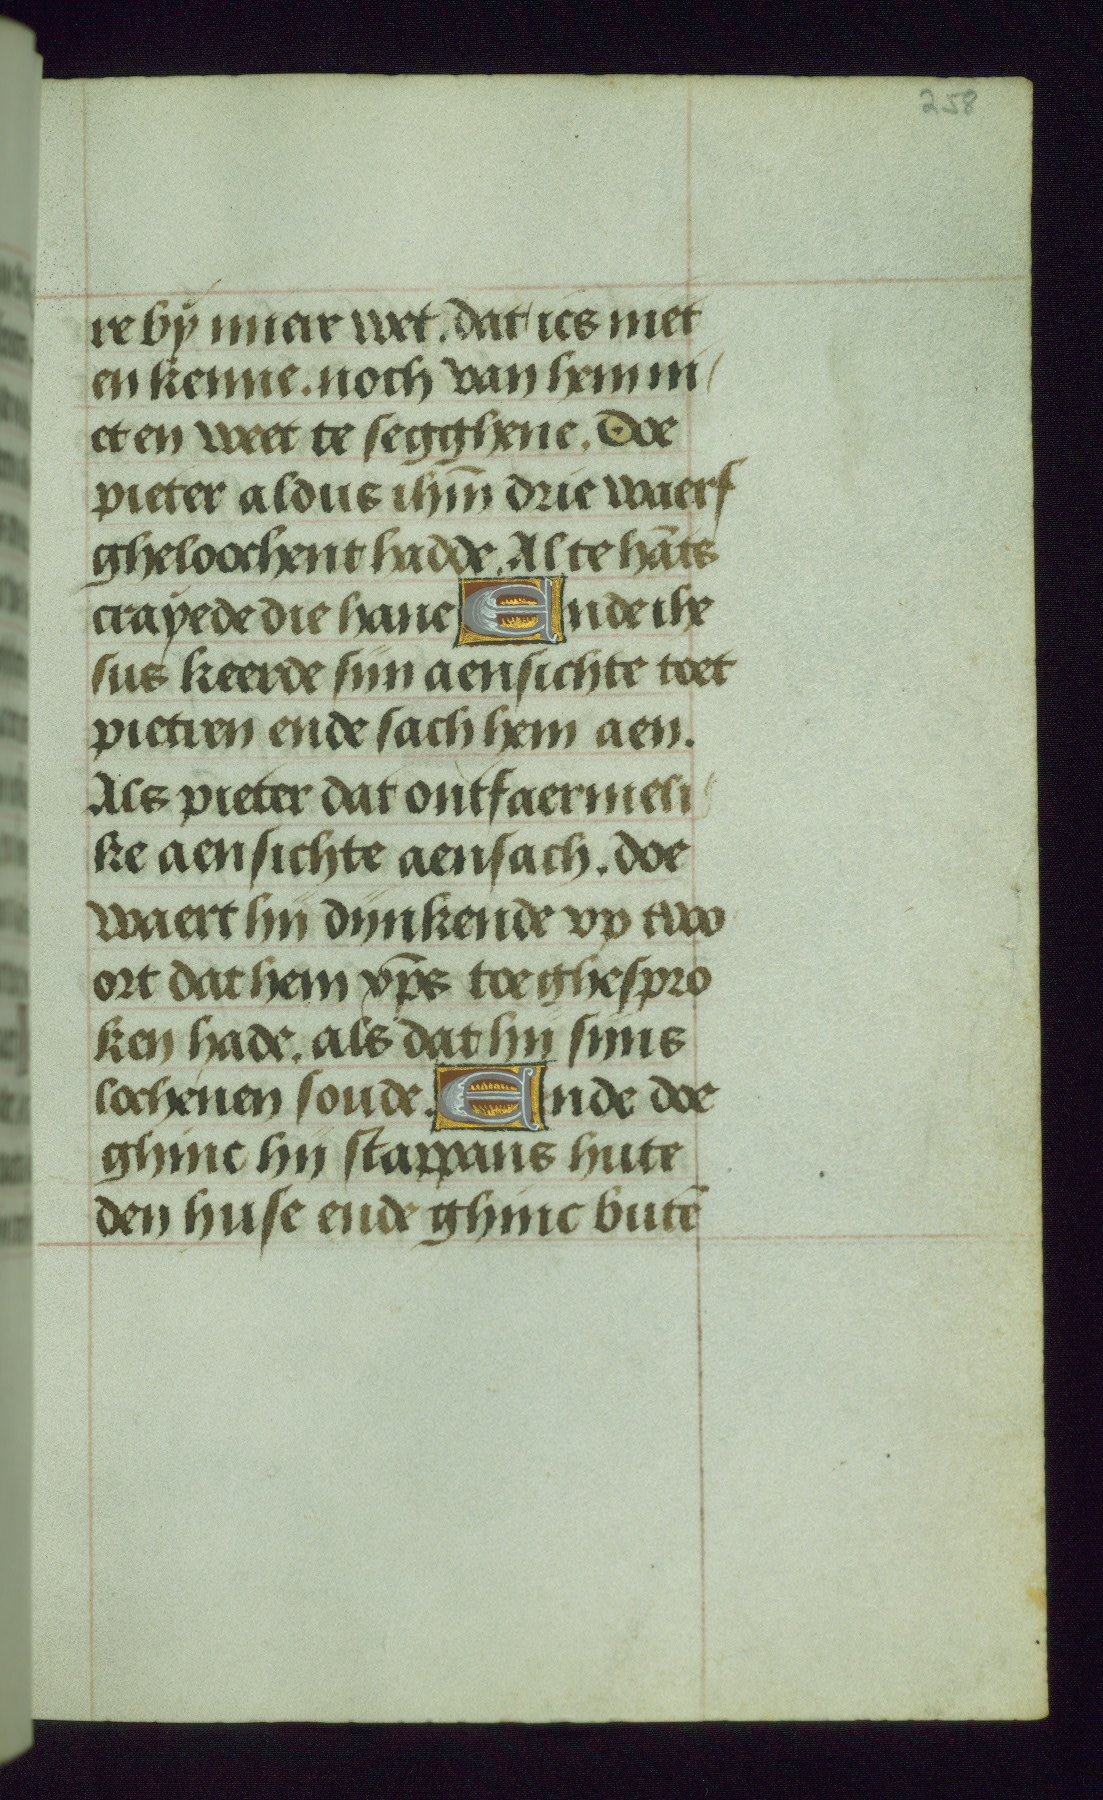 258
re by miner wet. dat ics niet
en kenne. noch van hem ni/
et en weet te segghene. Doe
pieter aldus ihm̄ drie waerf
gheloochent hadde. Al te hāts
crayede die hane Ende ihe
sus keerde sijn aensichte toet
pietren ende sach hem aen.
Als pieter dat ontfaermeli/
ke aensichte aensach. doe
waert hij dijnkende vp two
ort dat hem xp̄s toe ghespro
ken hade. als dat hij sijns
lochenen soude. Ende doe
ghinc hij stappans hute
den huse ende ghinc butē